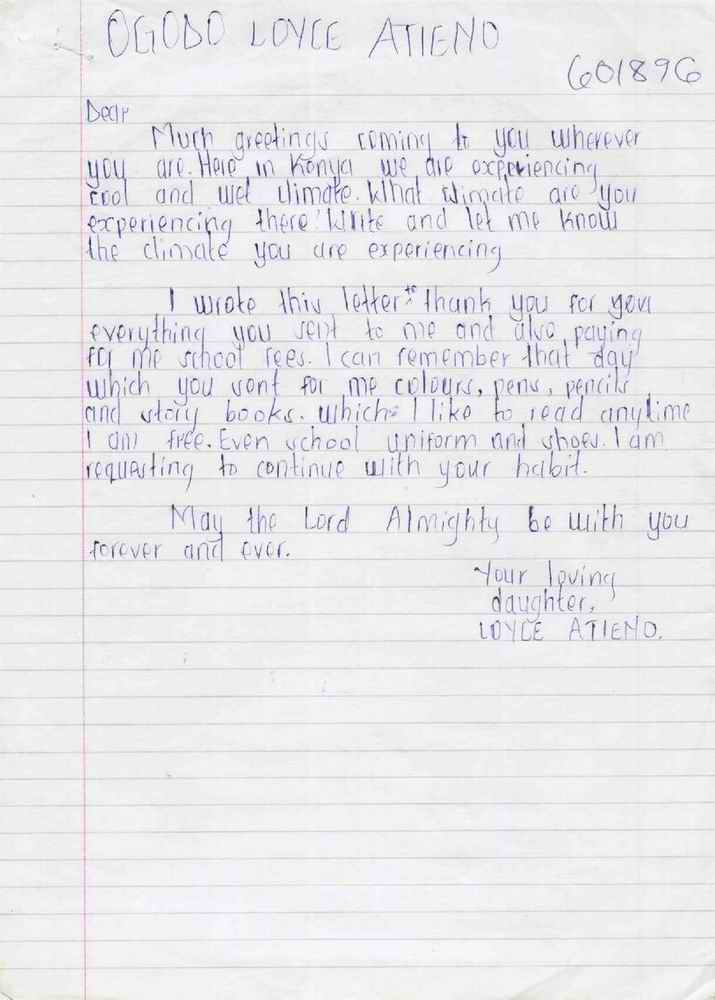 OGODO LOYCE ATIENO
601896
Dear
Much greetings coming to you wherever
you are. Here in Kenya we are experiencing
cool and wet climate. What climate are you
experiencing there? Write and let me know
the climate you are experiencing
I wrote this letter to thank you for you
everything you sent to me and also paying
for me school fees. I can remember that day
which you sent for me colours, pens, pencils
and story books. which I like to read anytime
I am free. Even school uniform and shoes. I am
requesting to continue with your habit.
May the Lord Almighty be with you
forever and ever.
Your loving
daughter,
LOYCE ATIENO.